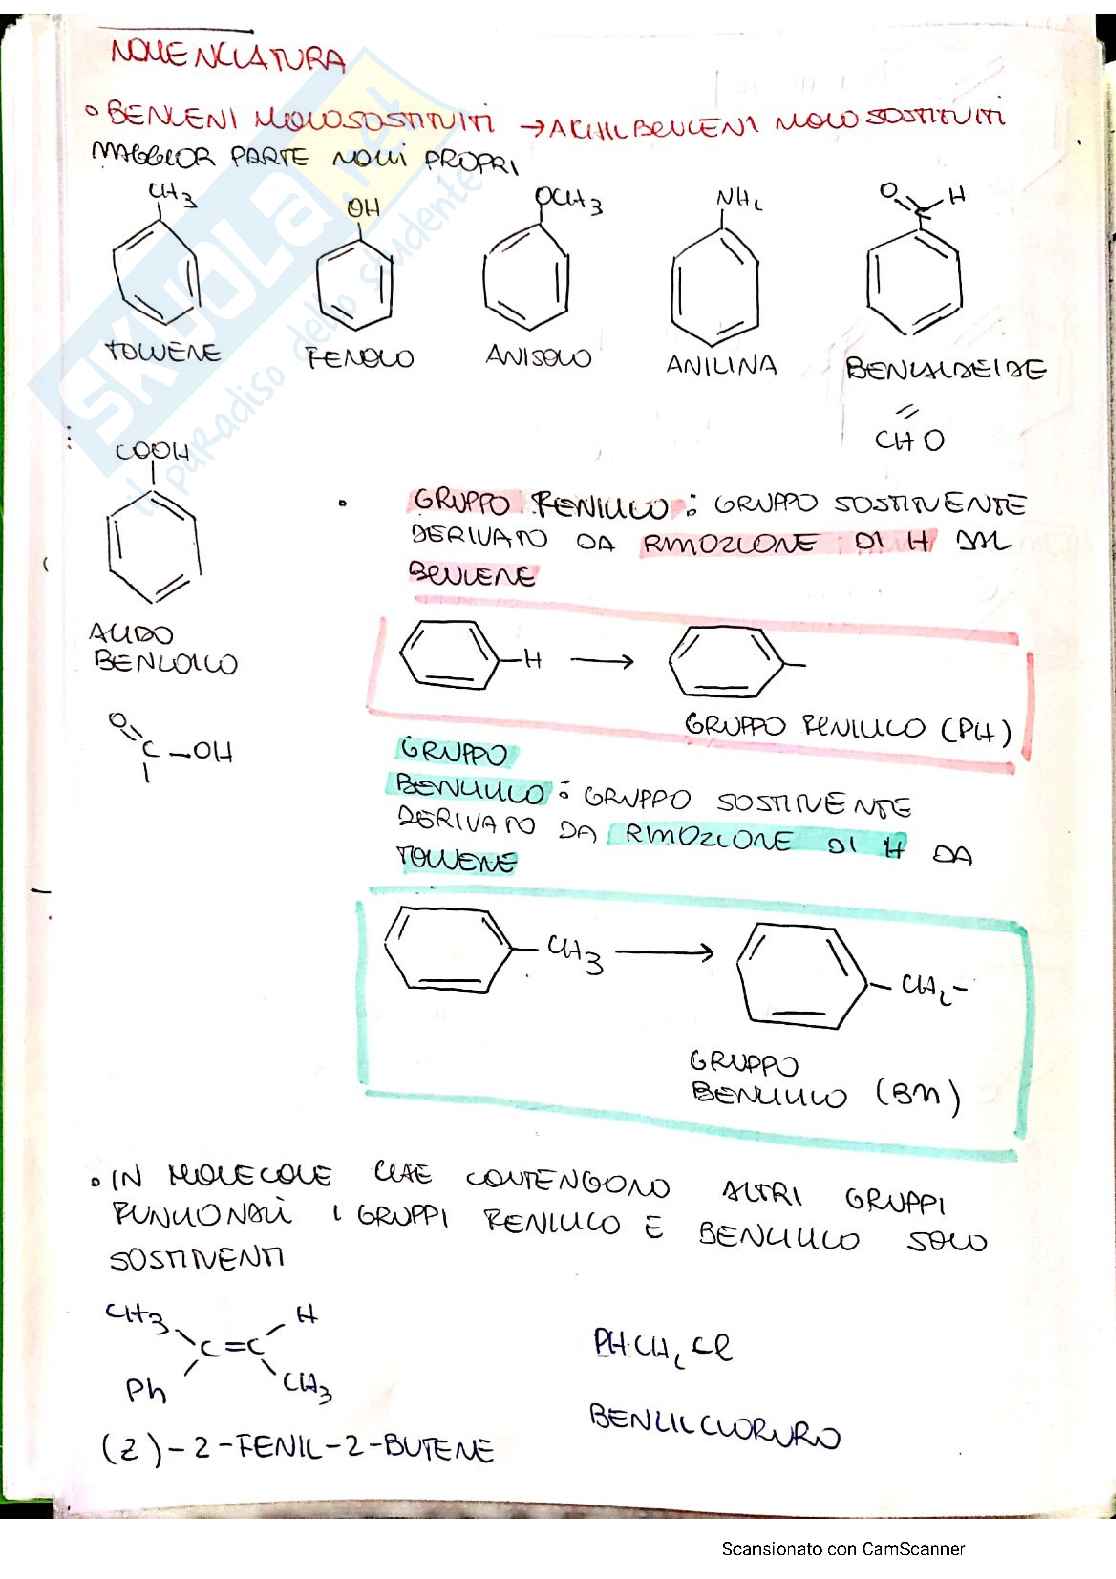 NOMENCLATURA
• BENZENI MONOSOSTITUITI → ALCHILBENZENI MONOSOSTITUITI
MAGGIOR PARTE NOMI PROPRI
CH3
OH
OCH3
NH2
O H
C
TOLUENE
FENOLO
ANISOLO
ANILINA
BENZALDEIDE
CHO
COOH
ACIDO
BENZOICO
O
C - OH
• GRUPPO FENILICO: GRUPPO SOSTITUENTE
DERIVATO DA RIMOZIONE DI H DAL
BENZENE
-H →
GRUPPO FENILICO (PH)
GRUPPO
BENZILICO: GRUPPO SOSTITUENTE
DERIVATO DA RIMOZIONE DI H DA
TOLUENE
- CH3 → - CH2 -
GRUPPO
BENZILICO (BN)
• IN MOLECOLE CHE CONTENGONO ALTRI GRUPPI
FUNZIONALI I GRUPPI FENILICO E BENZILICO SOLO
SOSTITUENTI
CH3 H
C = C
Ph CH3
(Z)-2-FENIL-2-BUTENE
PHCH2Cl
BENZILCLORURO
SKUOLA.net
il paradiso dello studente
Scansionato con CamScanner